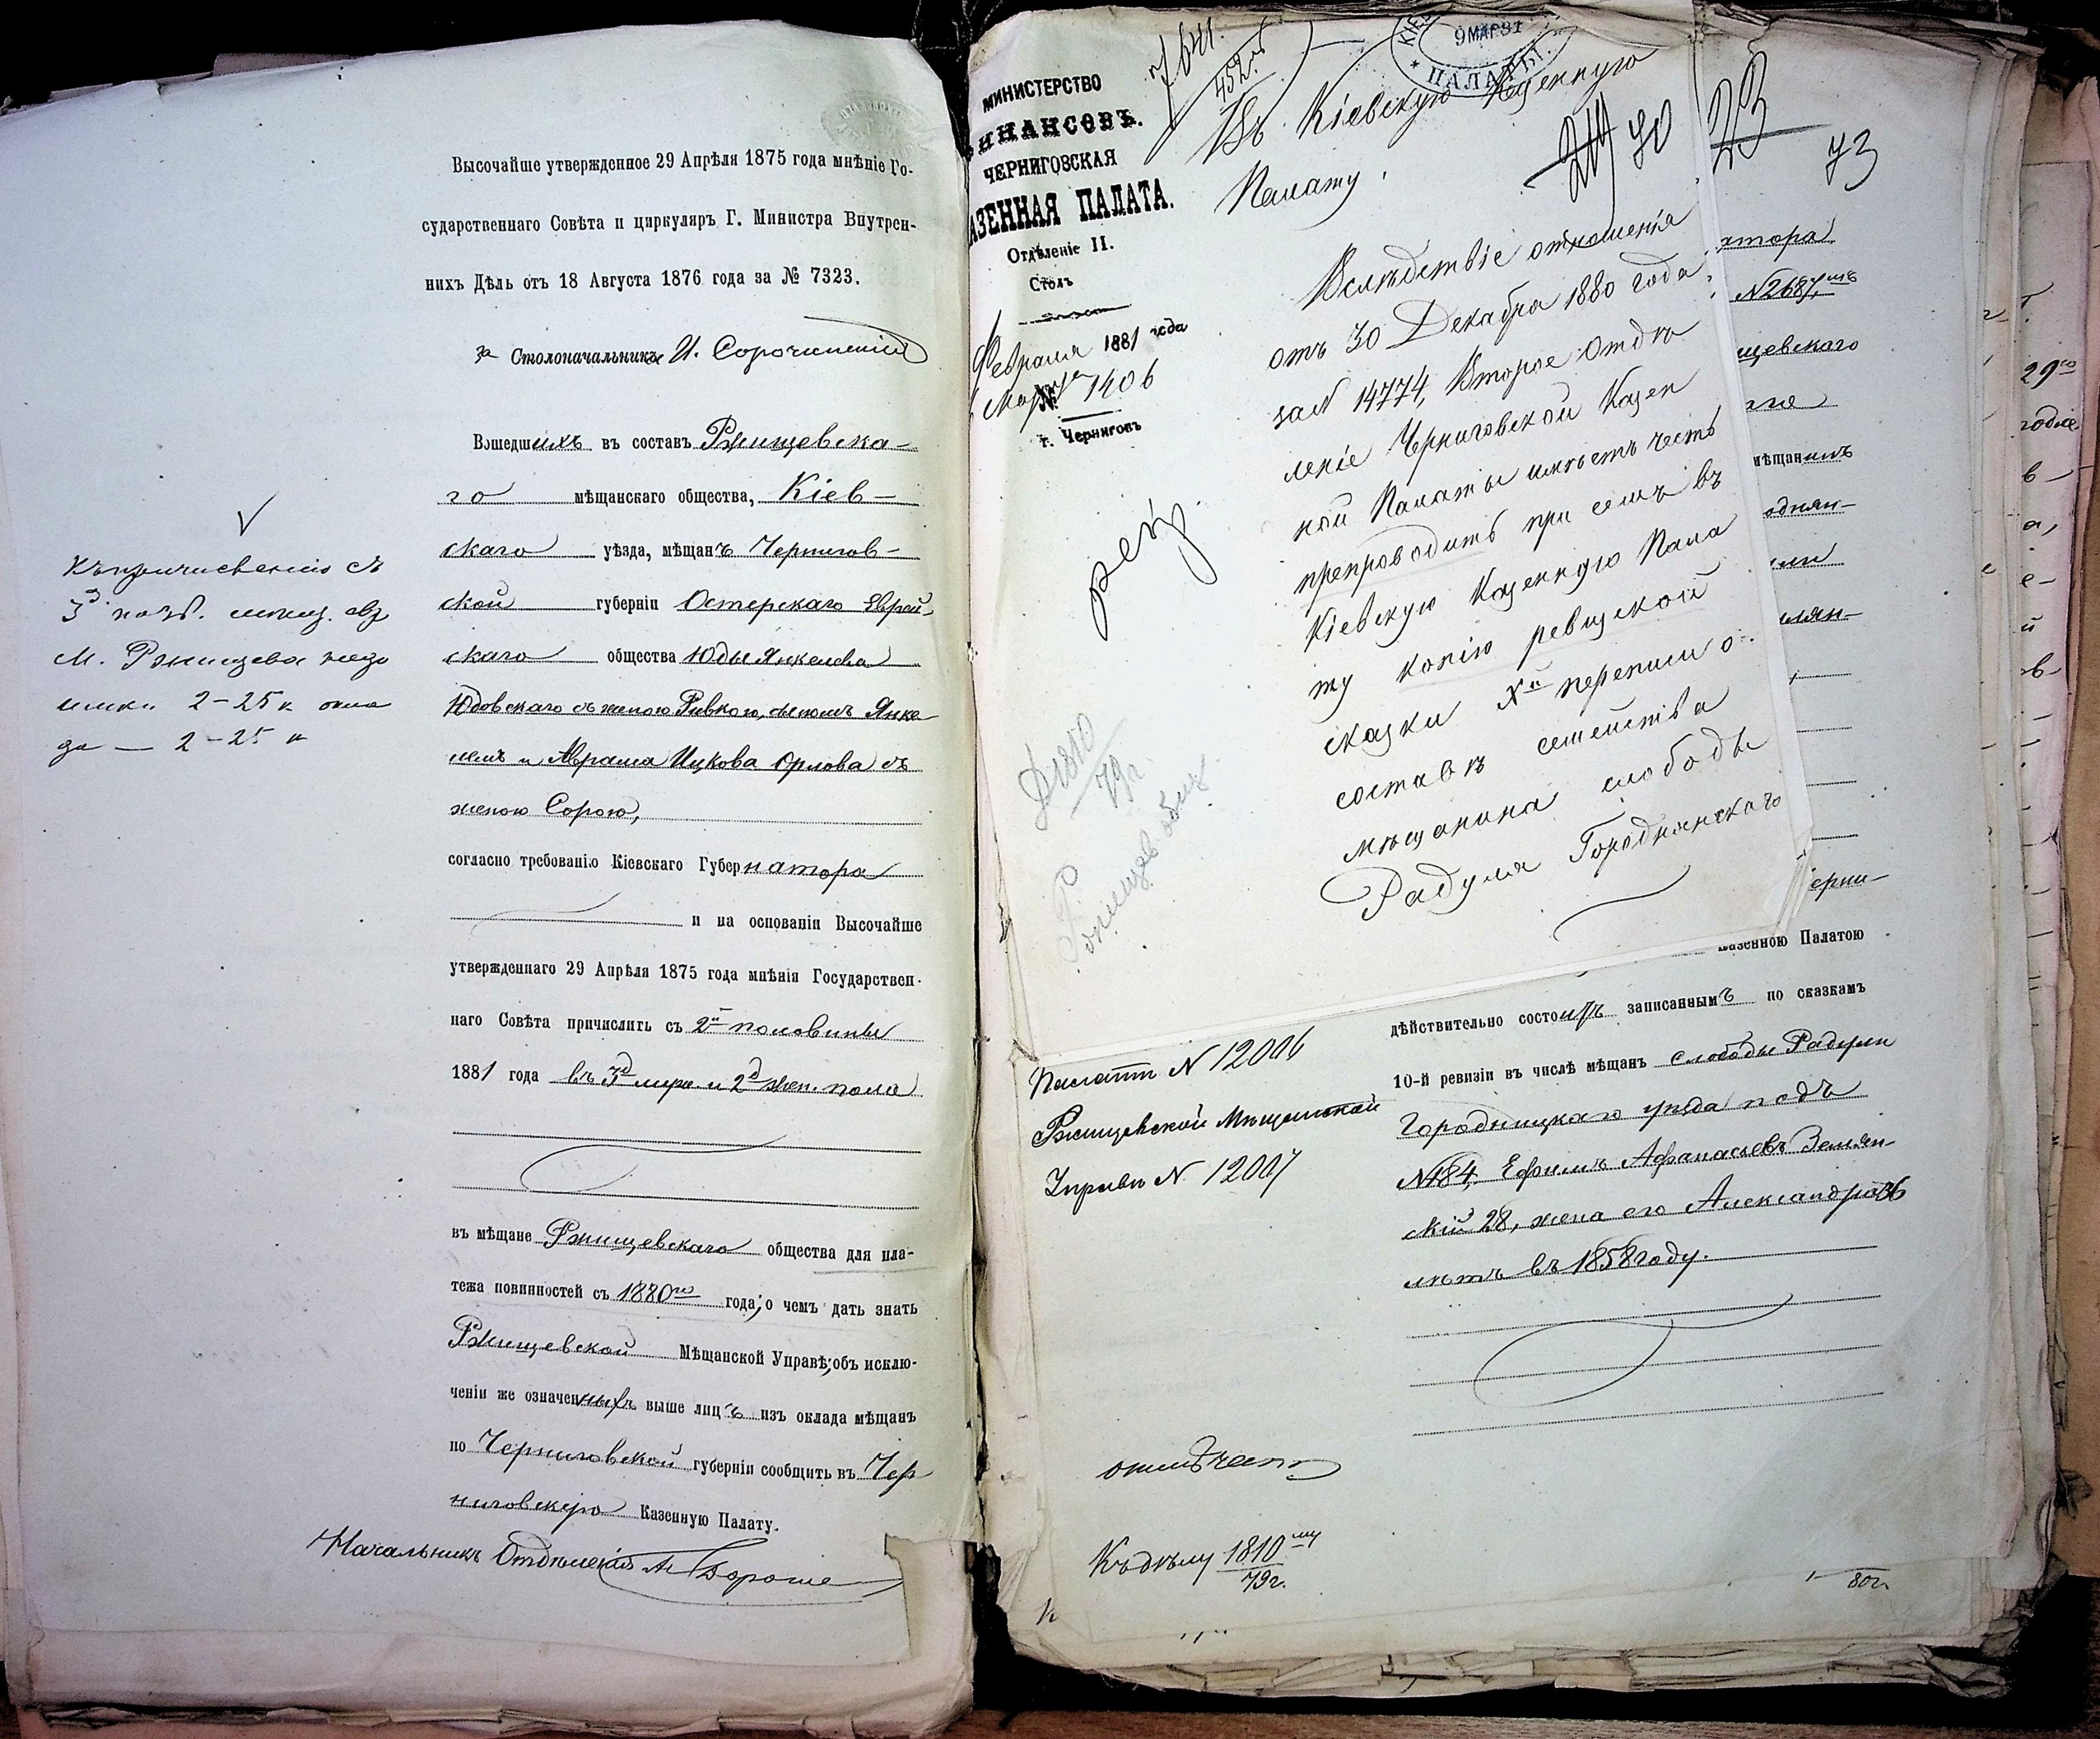 Высочайше утвержденное 29 Апрѣля 1875 года мнѣніе Го-
сударственнаго Совѣта и циркуляръ Г. Министра Внутрен-
нихъ Дѣлъ отъ 18 Августа 1876 года за № 7323.
за Столоначальника И. Сорочинскій
Вошедшихъ въ составъ Ржищевска-
го мѣщанскаго общества, Кіев-
скаго уѣзда, мѣщанъ Чернигов-
ской губерніи Остерскаго Еврей-
скаго общества Юды Янкелева
Юдовскаго съ женою Ривкою, сыномъ Янке
лемъ и Абрама Ицкова Орлова съ
женою Сорою,
согласно требованію Кіевскаго Губернатора
и на основаніи Высочайше
утвержденнаго 29 Апрѣля 1875 года мнѣнія Государствен-
наго Совѣта причислить съ 2й половины
1881 года въ 3д муж. и 2д жен. пола
въ мѣщане Ржищевскаго общества для пла-
тежа повинностей съ 1880го года; о чемъ дать знать
Ржищевской Мѣщанской Управѣ; объ исклю-
ченіи же означенныхъ выше лицъ изъ оклада мѣщанъ
по Черниговской губерніи сообщить въ Чер
ниговскую Казенную Палату.
Начальникъ Отдѣленія
Къ причисленію съ
М. Ржищева
2-25 к
2-25 к
МИНИСТЕРСТВО
ИНАНСОВЪ.
ЧЕРНИГОВСКАЯ
АЗЕННАЯ ПАЛАТА.
Отдѣленіе II.
Столъ
Февраля 1881 года
Марта
№ 1406
г. Черниговъ
7641
452
9 МАР 81
ПАЛАТЫ
Въ Кіевскую Казенную
Палату.
70
23
73
Вслѣдствіе отношенія
отъ 30 Декабря 1880 года
за N 14774, Второе Отдѣ
леніе Черниговской Казен
ной Палаты имѣетъ честь
препроводить при семъ въ
Кіевскую Казенную Пала
ту копію ревизской
сказки Хй переписи о
составѣ семейства
мѣщанина слободы
Радуля Городнянскаго
рев.
1810
79 г.
Ржищев. общ.
атора
N 2687
щевскаго
мѣщанинъ
однян-
лян-
ерни-
Казенною Палатою
дѣйствительно состоитъ записаннымъ по сказкамъ
10-й ревизіи въ числѣ мѣщанъ слободы Радули
Городницкаго уѣзда подъ
N 184, Ефимъ Афанасьевъ Землян-
скій 28, жена его Александра 26
лѣтъ въ 1858 году.
Палатѣ N 12006
Ржищевской Мѣщанской
Управѣ N 12007
отмѣчено
Къ дѣлу 1810му
79 г.
80 г.